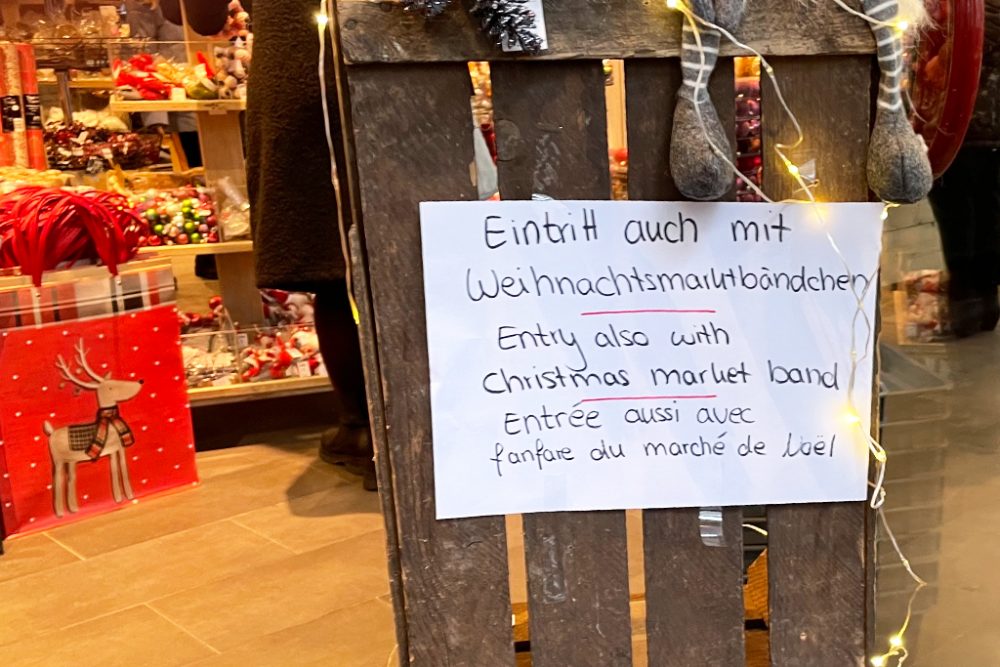 Eintritt auch mit
Weihnachtsmarktbändchen
Entry also with
Christmas market band
Entrée aussi avec
fanfare du marché de Noël